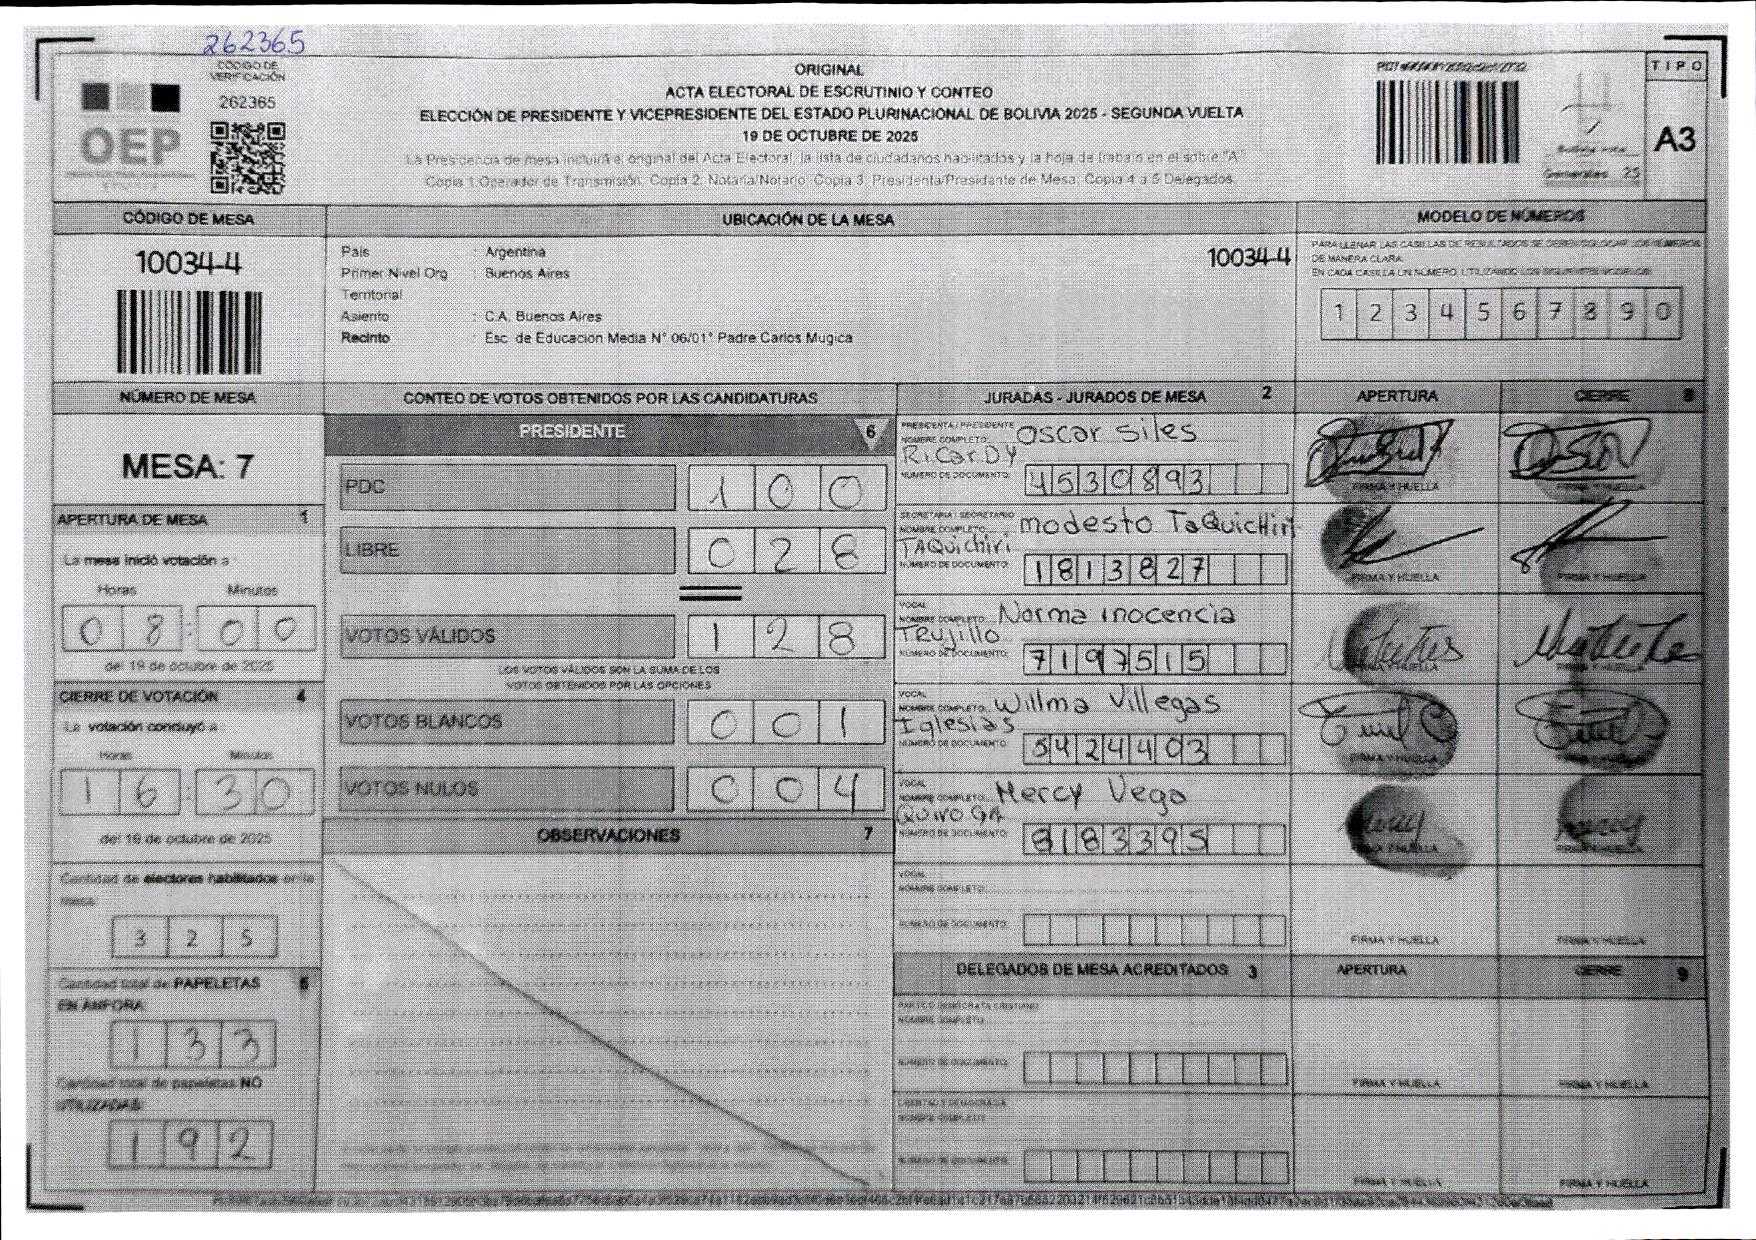 262365
CÓDIGO DE
VERIFICACIÓN
262365
OEP
ORIGINAL
ACTA ELECTORAL DE ESCRUTINIO Y CONTEO
ELECCIÓN DE PRESIDENTE Y VICEPRESIDENTE DEL ESTADO PLURINACIONAL DE BOLIVIA 2025 - SEGUNDA VUELTA
19 DE OCTUBRE DE 2025
La Presidencia de mesa incluirá el original del Acta Electoral, la lista de ciudadanos habilitados y la hoja de trabajo en el sobre "A"
Copia 1 Operador de Transmisión, Copia 2. Notaria/Notario, Copia 3. Presidenta/Presidente de Mesa, Copia 4 a 5 Delegados.
Generales 25
TIPO
A3
CÓDIGO DE MESA
10034-4
UBICACIÓN DE LA MESA
País : Argentina
Primer Nivel Org : Buenos Aires
Territorial
Asiento : C.A. Buenos Aires
Recinto : Esc. de Educacion Media N° 06/01° Padre Carlos Mugica
10034-4
MODELO DE NÚMEROS
PARA LLENAR LAS CASILLAS DE RESULTADOS SE DEBEN
DE MANERA CLARA.
EN CADA CASILLA UN NÚMERO, UTILIZANDO LOS
1 2 3 4 5 6 7 8 9 0
NÚMERO DE MESA
MESA: 7
APERTURA DE MESA 1
La mesa inició votación a :
Horas Minutos
08:00
del 19 de octubre de 2025
CIERRE DE VOTACIÓN 4
La votación concluyó a :
Horas Minutos
16:30
del 19 de octubre de 2025
Cantidad de electores habilitados en la
mesa:
3 2 5
Cantidad total de PAPELETAS 5
EN ÁNFORA:
1 3 3
Cantidad total de papeletas NO
UTILIZADAS:
1 9 2
CONTEO DE VOTOS OBTENIDOS POR LAS CANDIDATURAS
PRESIDENTE 6
PDC 1 0 0
LIBRE 0 2 8
VOTOS VÁLIDOS 1 2 8
LOS VOTOS VÁLIDOS SON LA SUMA DE LOS
VOTOS OBTENIDOS POR LAS OPCIONES
VOTOS BLANCOS 0 0 1
VOTOS NULOS 0 0 4
OBSERVACIONES 7
JURADAS - JURADOS DE MESA 2
APERTURA
CIERRE 8
PRESIDENTA / PRESIDENTE
NOMBRE COMPLETO: Oscar Siles
RicarDY
NÚMERO DE DOCUMENTO: 4530893
FIRMA Y HUELLA
FIRMA Y HUELLA
SECRETARIA / SECRETARIO
NOMBRE COMPLETO: modesto TaQuichiri
TAQuichiri
NÚMERO DE DOCUMENTO: 1813827
FIRMA Y HUELLA
FIRMA Y HUELLA
VOCAL
NOMBRE COMPLETO: Norma inocencia
TRUjillo
NÚMERO DE DOCUMENTO: 7197515
VOCAL
NOMBRE COMPLETO: Willma Villegas
Iglesias
NÚMERO DE DOCUMENTO: 5424403
FIRMA Y HUELLA
FIRMA Y HUELLA
VOCAL
NOMBRE COMPLETO: Mercy Vega
QuiroGA
NÚMERO DE DOCUMENTO: 8183395
FIRMA Y HUELLA
FIRMA Y HUELLA
VOCAL
NOMBRE COMPLETO:
NÚMERO DE DOCUMENTO:
FIRMA Y HUELLA
FIRMA Y HUELLA
DELEGADOS DE MESA ACREDITADOS 3
APERTURA
CIERRE 9
PARTIDO DEMÓCRATA CRISTIANO
NOMBRE COMPLETO:
NÚMERO DE DOCUMENTO:
FIRMA Y HUELLA
FIRMA Y HUELLA
NOMBRE COMPLETO:
NÚMERO DE DOCUMENTO:
FIRMA Y HUELLA
FIRMA Y HUELLA